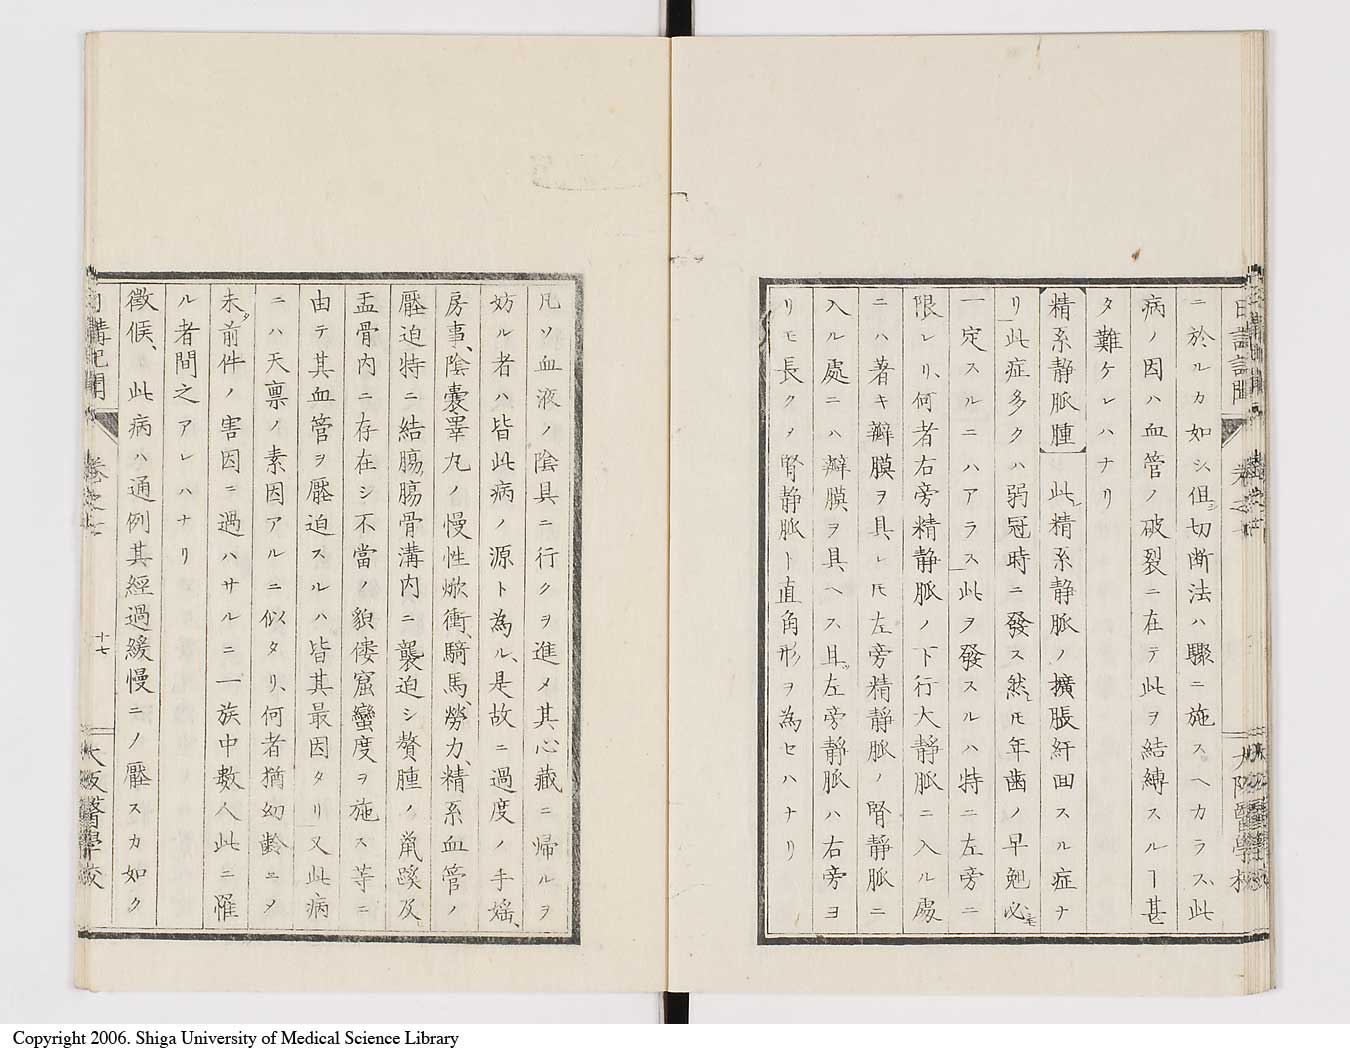 ニ於ルカ如シ但シ切断法ハ驟ニ施スヘカラス此
病ノ因ハ血管ノ破裂ニ在テ此ヲ結縛スルヿ甚
タ難ケレハナリ
精系静脈腫 此レ精系静脈ノ擴脹紆回スル症ナ
リ此症多クハ弱冠時ニ發ス然レ𪜈年歯ノ早勉必モ
一定スルニハアラス此ヲ發スルハ特ニ左旁ニ
限レリ、何者右旁精静脈ノ下行大静脈ニ入ル處
ニハ著キ瓣膜ヲ具レ𪜈左旁精静脈ノ腎静脈ニ
入ル處ニハ瓣膜ヲ具ヘス且ツ左旁静脈ハ右旁ヨ
リモ長クノ腎静脈ト直角形ヲ為セハナリ
凡ソ血液ノ陰具ニ行クヲ進メ其心藏ニ帰ルヲ
妨ル者ハ皆此病ノ源ト為ル、是故ニ過度ノ手婬、
房事、陰嚢睪丸ノ慢性焮衝、騎馬、勞力、精系血管ノ
壓迫特ニ結腸、腸骨溝内ニ襲迫シ贅腫ノ鼠蹊及
盂骨内ニ存在シ不當ノ貌僂窟蠻度ヲ施ス等ニ
由テ其血管ヲ壓迫スルハ皆其最因タリ又此病
ニハ天禀ノ素因アルニ似タリ、何者猶幼齢ニメ
未タ前件ノ害因ニ遇ハサルニ一族中數人此ニ罹
ル者間之アレハナリ
徴候、此病ハ通例其經過緩慢ニノ壓スカ如ク
日講記聞
卷之
十七
大阪醫學校